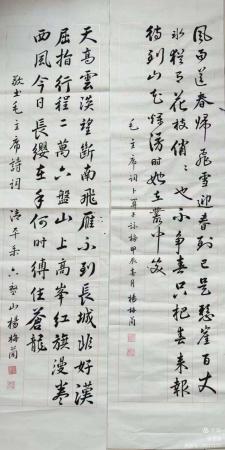 風雨送春歸飛雪迎春到已是懸崖百丈
冰猶有花枝俏〻也不争春只把春来報
待到山花爛漫時她在叢中笑
毛主席词卜算子詠梅甲辰春月楊梅蘭
天高雲淡望斷南飛雁不到長城非好漢
屈指行程二萬六盤山上高峯红旗漫卷
西風今日長纓在手何時縛住蒼龍
敬书毛主席詩词清平乐六盤山楊梅蘭